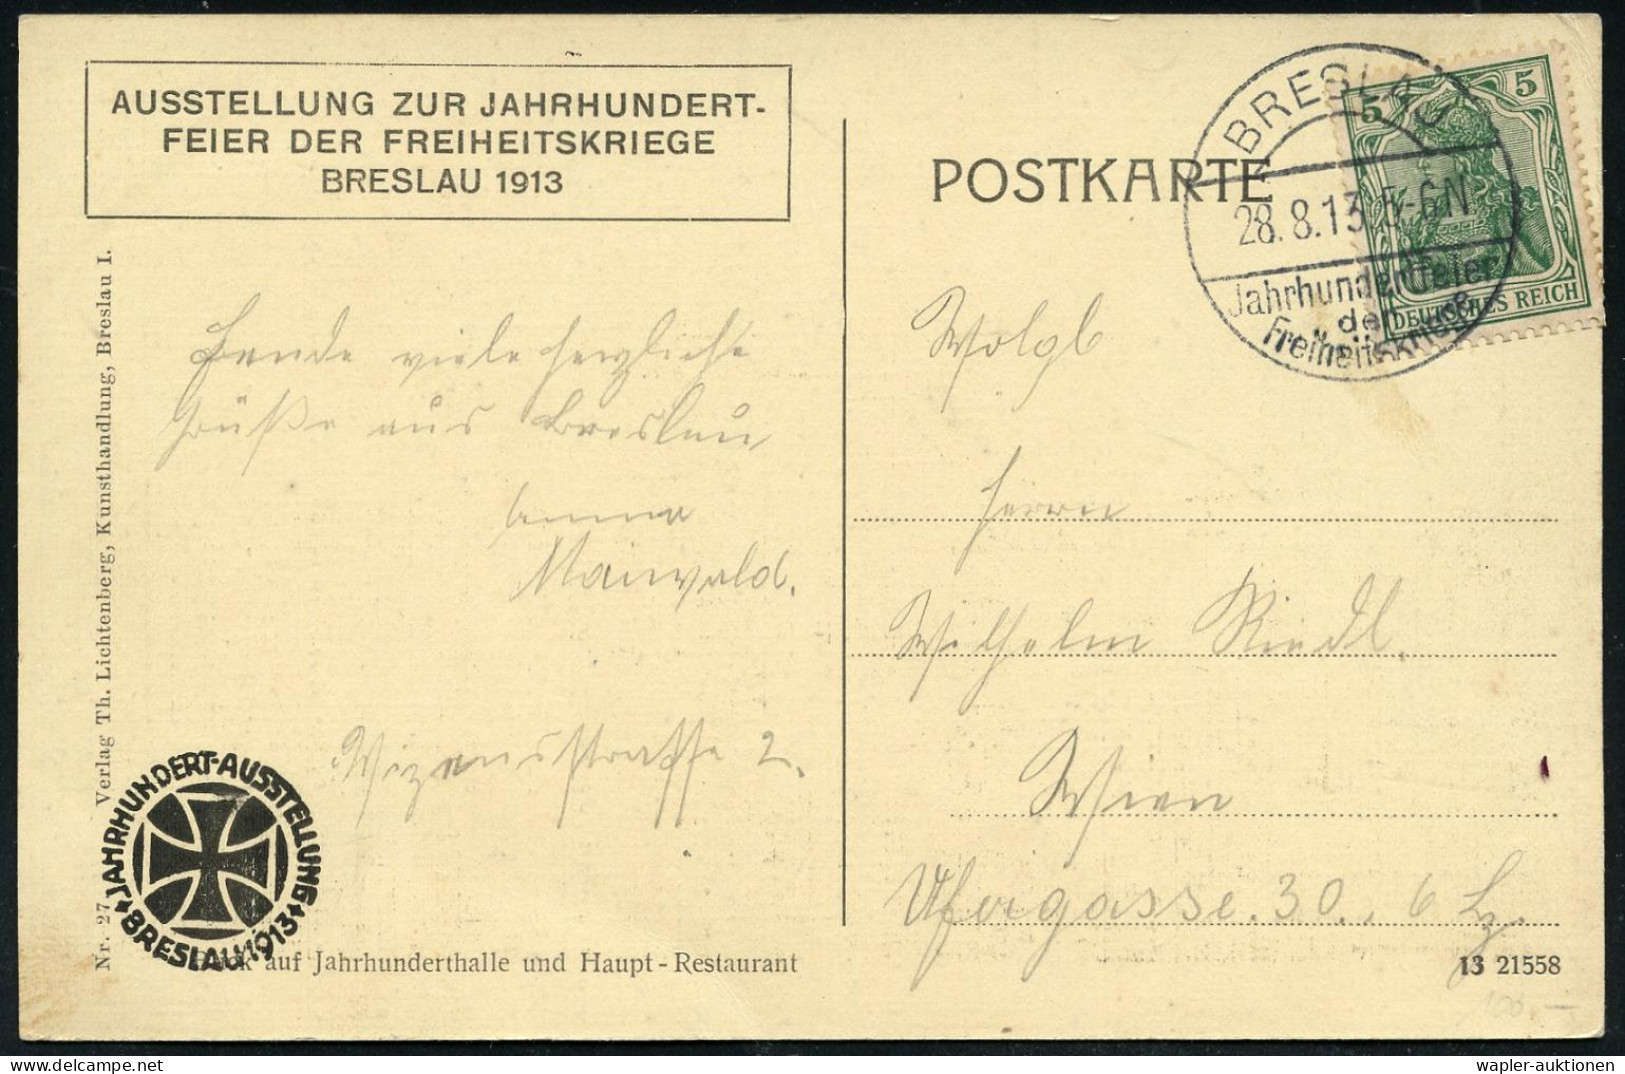 AUSSTELLUNG ZUR JAHRHUNDERT-
FEIER DER FREIHEITSKRIEGE
BRESLAU 1913
Nr. 27 Verlag Th. Lichtenberg, Kunsthandlung, Breslau I.
Sende viele herzliche
Grüße aus Breslau
Anna
Maiwald.
2.
JAHRHUNDERT-AUSSTELLUNG
BRESLAU 1913
auf Jahrhunderthalle und Haupt-Restaurant
POSTKARTE
BRESLAU
28.8.13.5-6N
Jahrhundertfeier
der
Freiheitskriege
5 5
DEUTSCHES REICH
Wolgb
Herrn
Wilhelm Riedl.
Wien
Ufergasse. 30., 6
13 21558
100.-
wapler-auktionen